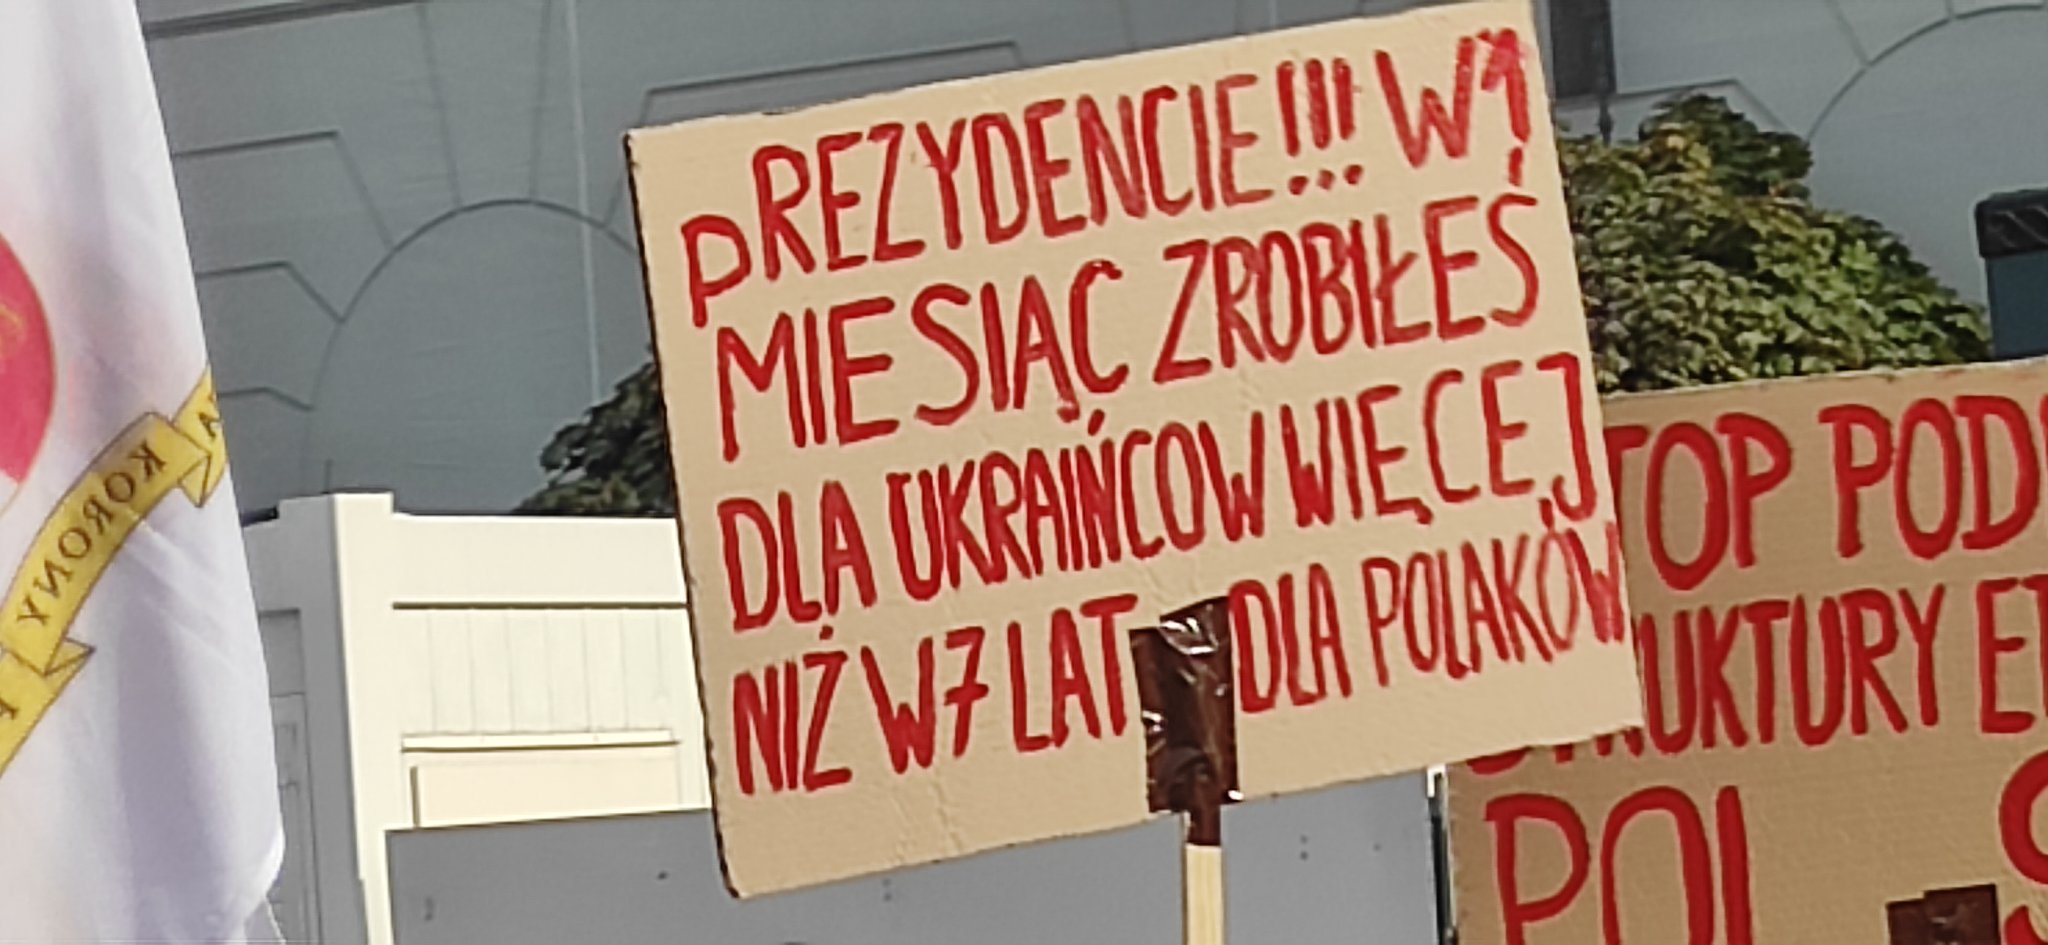 PREZYDENCIE!!! W 1
MIESIĄC ZROBIŁEŚ
DLA UKRAIŃCOW WIĘCEJ
NIŻ W 7 LAT DLA POLAKÓW
STOP
STRUKTURY
KORONY